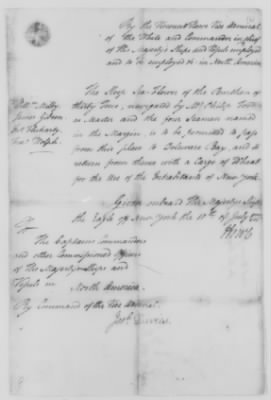 By the Viscount Howe Vice Admiral
of the White and Commander in chief
of His Majesty's Ships and Vessels employed
and to be employed &c in North America
The Sloop Sea-Flower of the Burthen of
thirty Tons, navigated by Mr. Philip
as Master and the four Seamen named
in the Margin, is to be permitted to pass
from this place to Delaware Bay, and to
return from thence with a Cargo of Wheat
for the Use of the Inhabitants of New York.
Given on board His Majesty's Ship
the Eagle off New York the 10th of July
Howe
To
The Captains Commanders
and other Commissioned Officers
of His Majesty's Ships and
Vessels in North America.
By Command of the Vice Admiral
Josh. Davies.